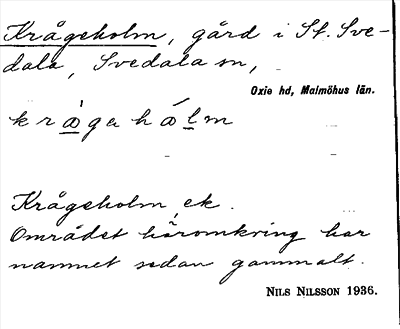 Krågeholm, gård i St. Sve-
dala, Svedala sn,
Oxie hd, Malmöhus län.
krågahålm
Krågeholm ek.
Området häromkring har
namnet sedan gammalt.
NILS NILSSON 1936.